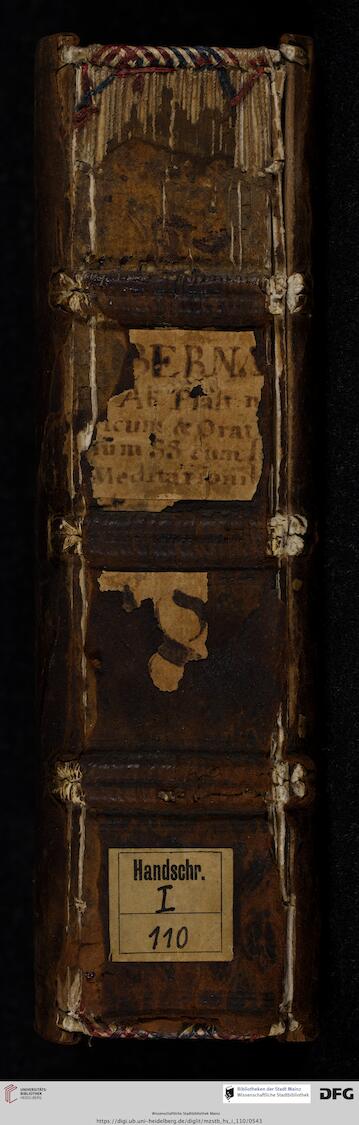 BERNA
Ab Psalt
icum & Orat
ium SS cum
Meditationi
Handschr.
I
110
UNIVERSITÄTS-
BIBLIOTHEK
HEIDELBERG
Bibliotheken der Stadt Mainz
Wissenschaftliche Stadtbibliothek
DFG
Wissenschaftliche Stadtbibliothek Mainz
https://digi.ub.uni-heidelberg.de/diglit/mzstb_hs_i_110/0543